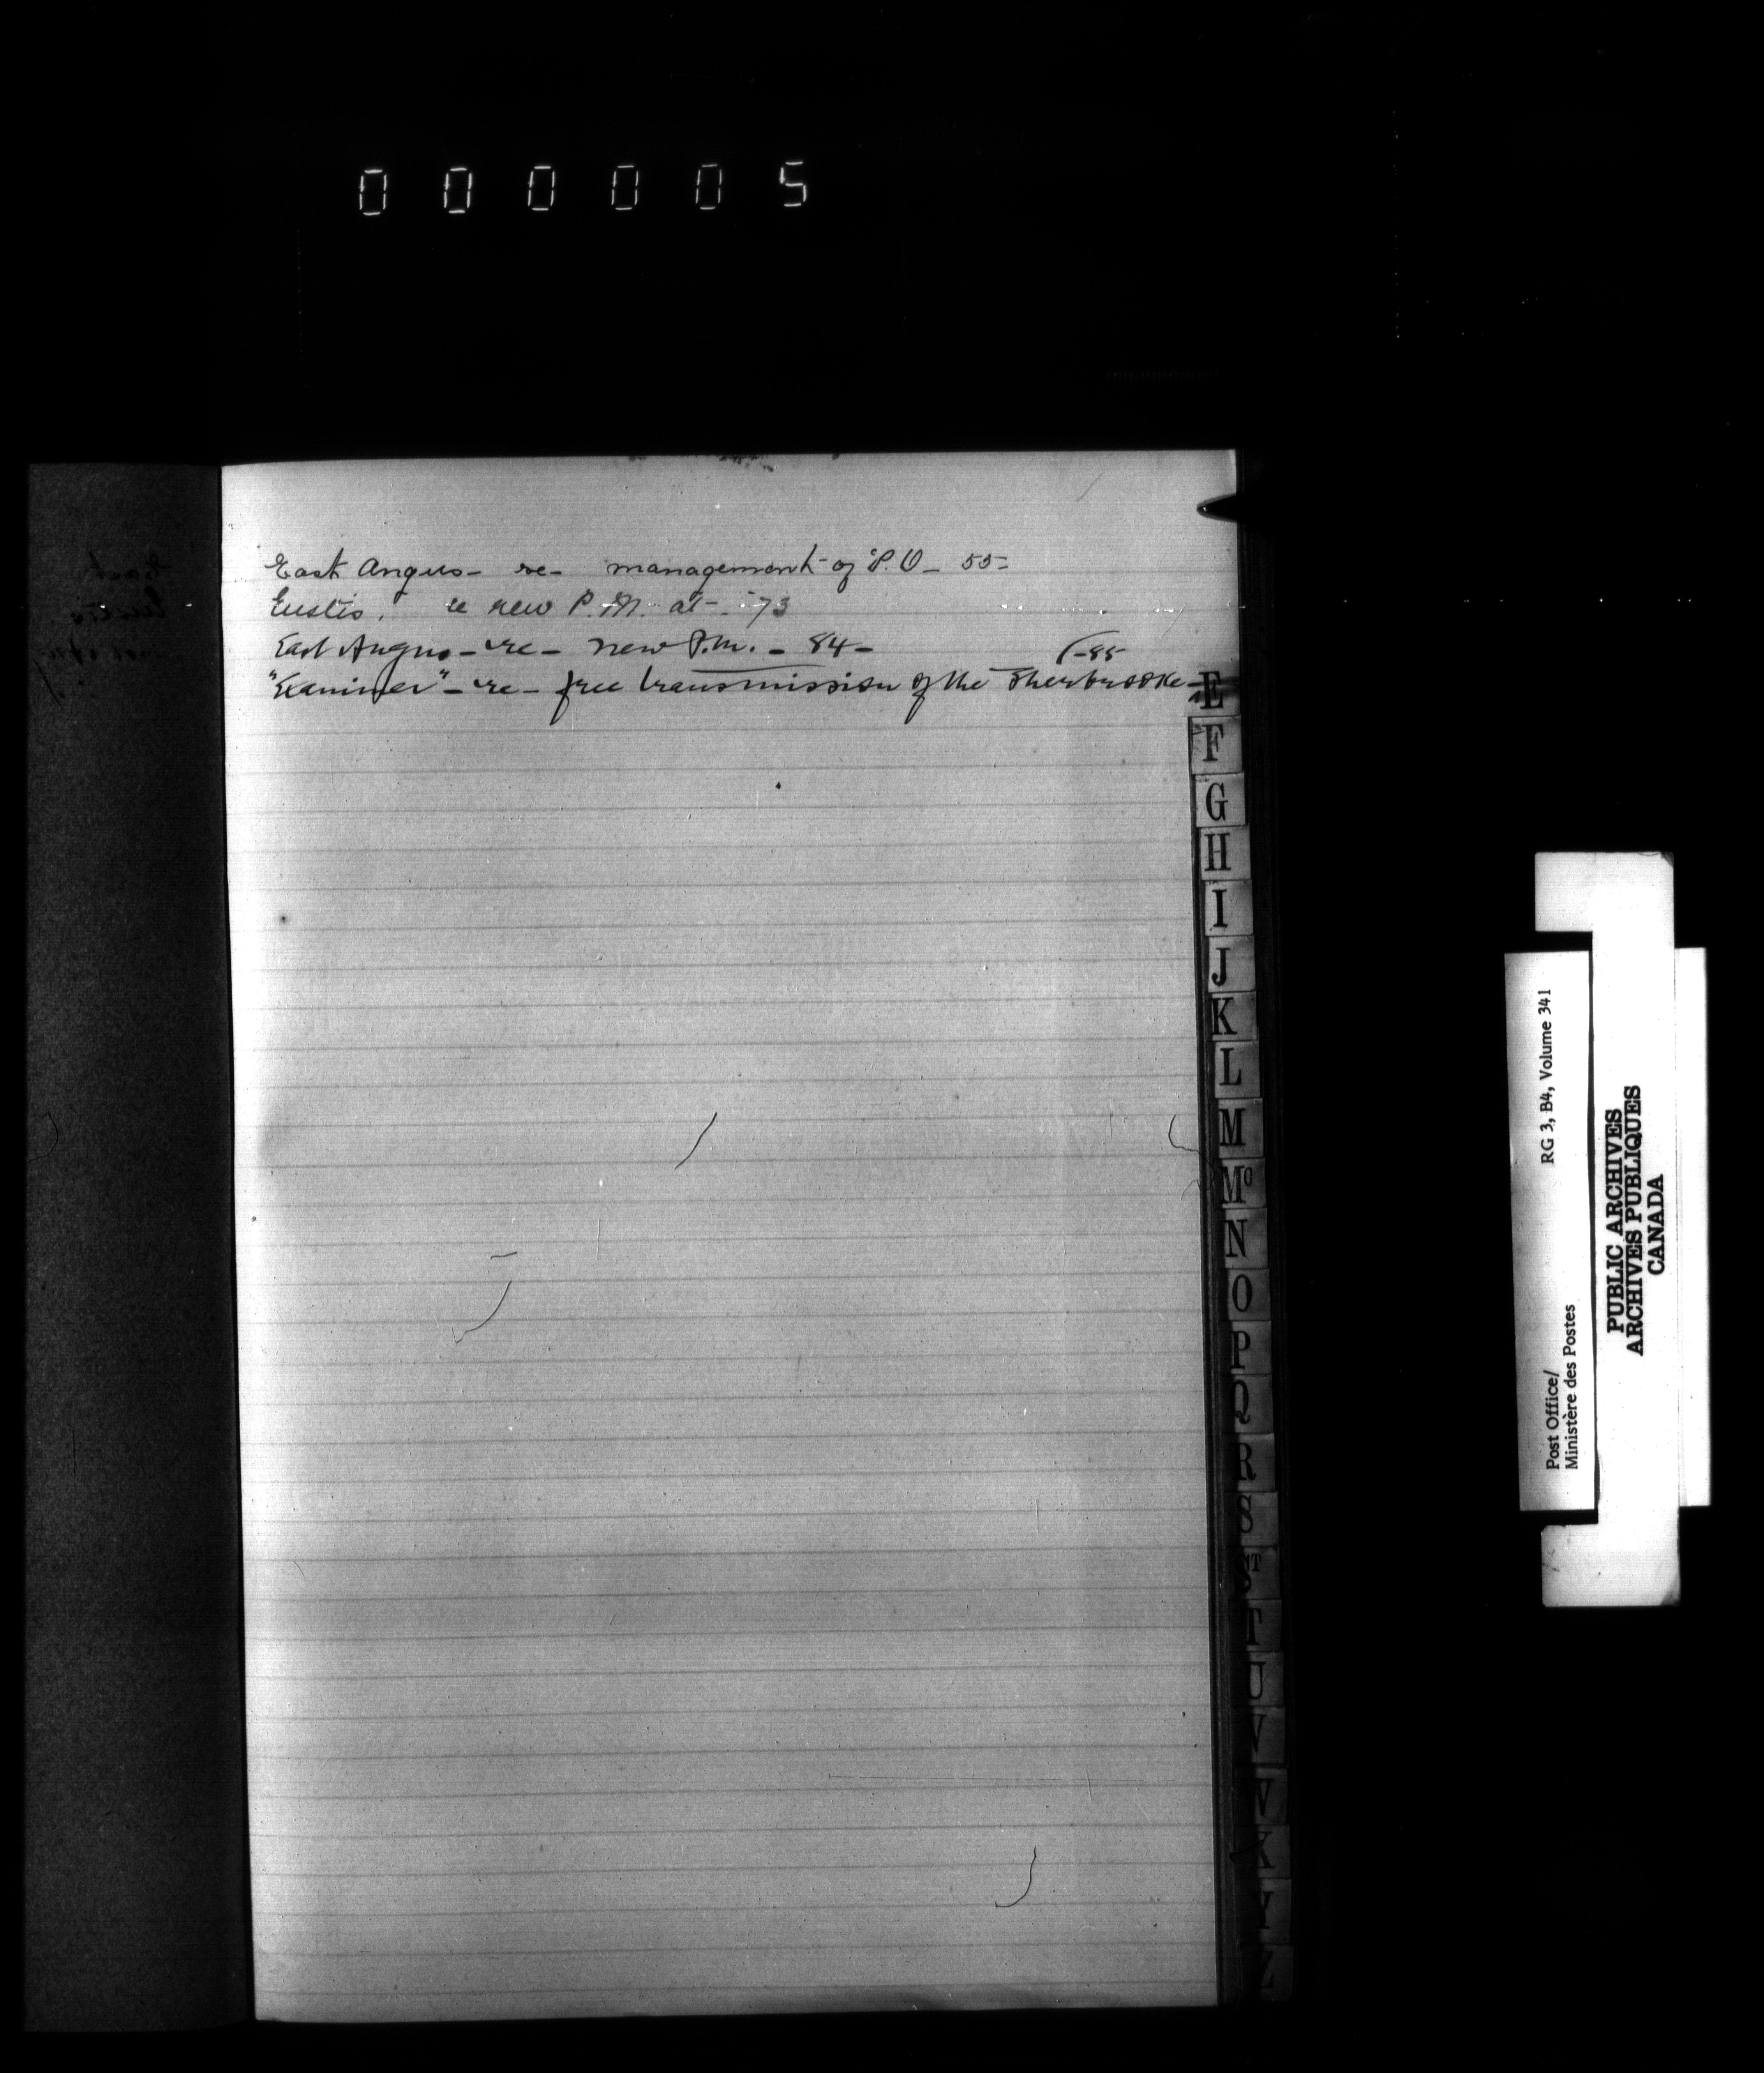 000005
East Angus - re - management of P.O - 55 -
Eustis. re new P.M. at - 73
East Angus - re - new P.M. - 84 -
(-85
"Examiner" - re - free transmission of the Sherbrooke -
E
F
G
H
I
J
K
L
M
Mc
N
O
P
Q
R
S
ST
T
U
V
W
X
Y
Z
RG 3, B4, Volume 341
Post Office/
Ministère des Postes
PUBLIC ARCHIVES
ARCHIVES PUBLIQUES
CANADA